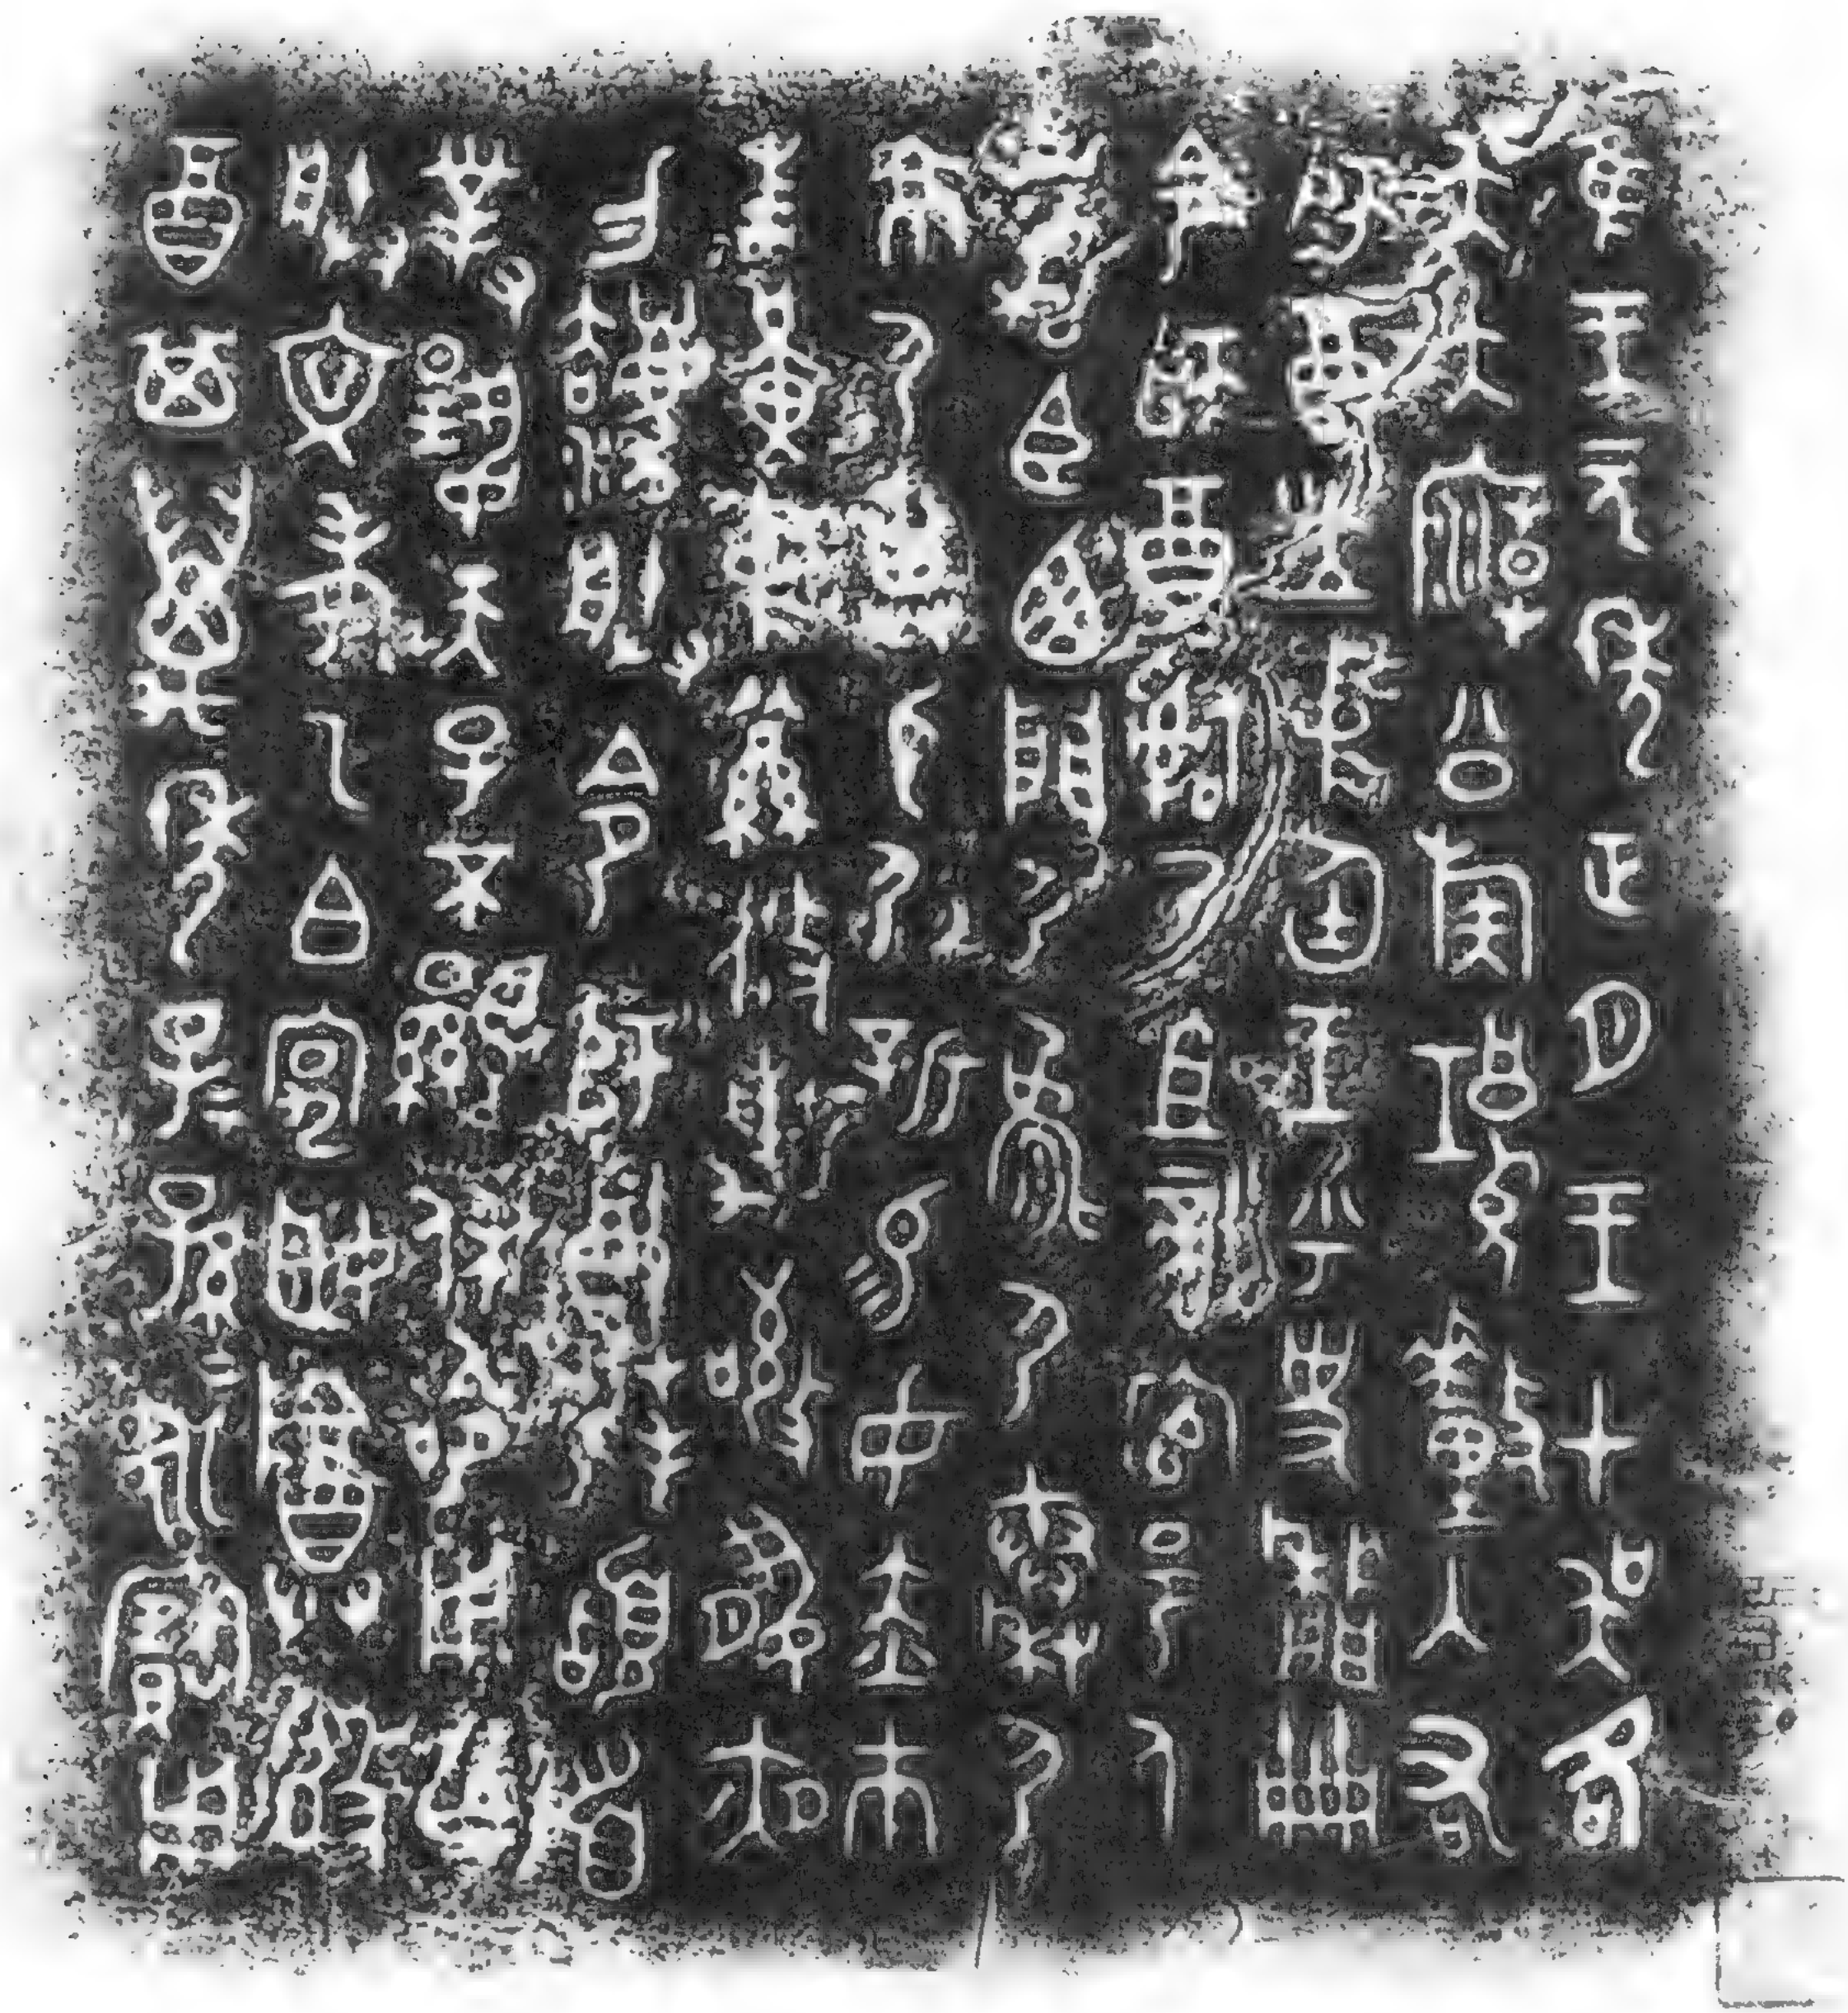 隹王元年正月王才吳各
吳大廟公族𤔲釐入右
師酉立中廷王乎史牆冊
命師酉𤔲乃且啻官邑人
虎臣西門尸𡩜尸秦尸
京尸畁身尸新易女赤巿
朱黃中𦄂攸勒敬夙夜
勿灋朕令師酉拜𩒨首
對揚天子不顯休令用乍
朕文考乙白宄姬尊𣪘
酉其萬年子子孫孫永寶用